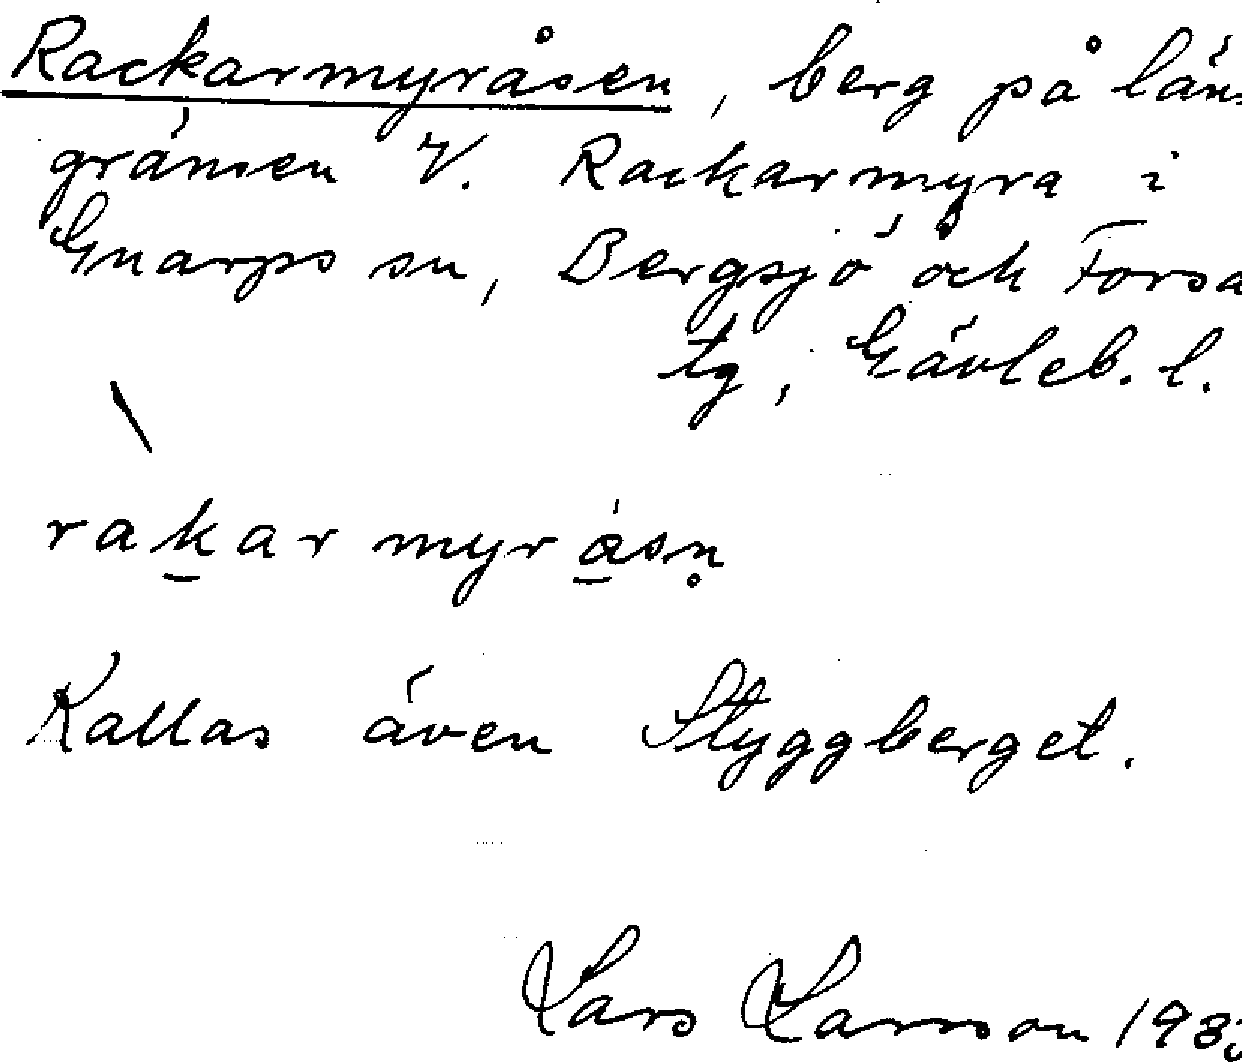 Rackarmyråsen, berg på läns
gränsen V. Rackarmyra i
Gnarps sn, Bergsjö och Forsa
tg, Gävleb. l.
rakarmyråsn̥
Kallas även Styggberget.
Lars Larsson 193